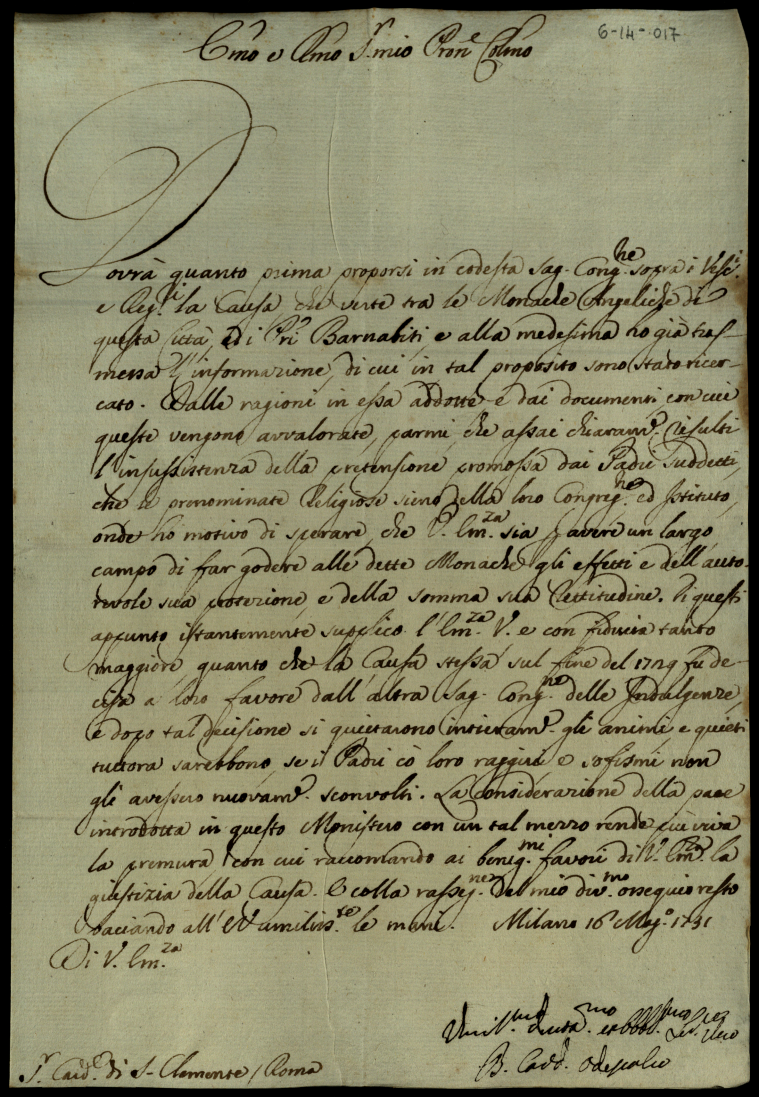 6-14-017
Emo e Rmo Sr. mio Prone Colmo
Dovrà quanto prima proporsi in codesta Sag. Congne sopra i Vesci
e Regri la Causa che verte tra le Monache Angeliche di
questa Città, ed i Pri Barnabiti, e alla medesima ho già tras-
messa l'informazione, di cui in tal proposito sono stato ricer-
cato. Dalle ragioni in essa addotte e dai documenti con cui
queste vengono avvalorate, parmi, che assai chiaramte risulti
l'insussistenza della pretensione promossa dai Padri suddetti,
che le prenominate Religiose sieno della loro Congregne ed Istituto,
onde ho motivo di sperare, che V. Emza sia p avere un largo
campo di far godere alle dette Monache gli effetti e dell'auto-
revole sua protezione, e della somma sua Rettitudine. Di questi
appunto istantemente supplico l'Emza V. e con fiducia tanto
maggiore quanto che la Causa stessa sul fine del 1729 fu de-
cisa a loro favore dall'altra Sag. Congne delle Indulgenze,
e dopo tal decisione si quietarono intieramte gli animi, e quieti
tuttora sarebbono, se i Padri cò loro raggiri e sofismi non
gli avessero nuovamte sconvolti. La considerazione della pace
introdotta in questo Monistero con un tal mezzo rende più viva
la premura con cui raccomando ai benigmi favori di V. Emza la
giustizia della Causa. E colla rassegne del mio divmo ossequio resto
baciando all'EV umilisste le mani. Milano 16 Magº 1731
Di V. Emza
B. Card. Odescalco
Sr. Card. di S. Clemente / Roma